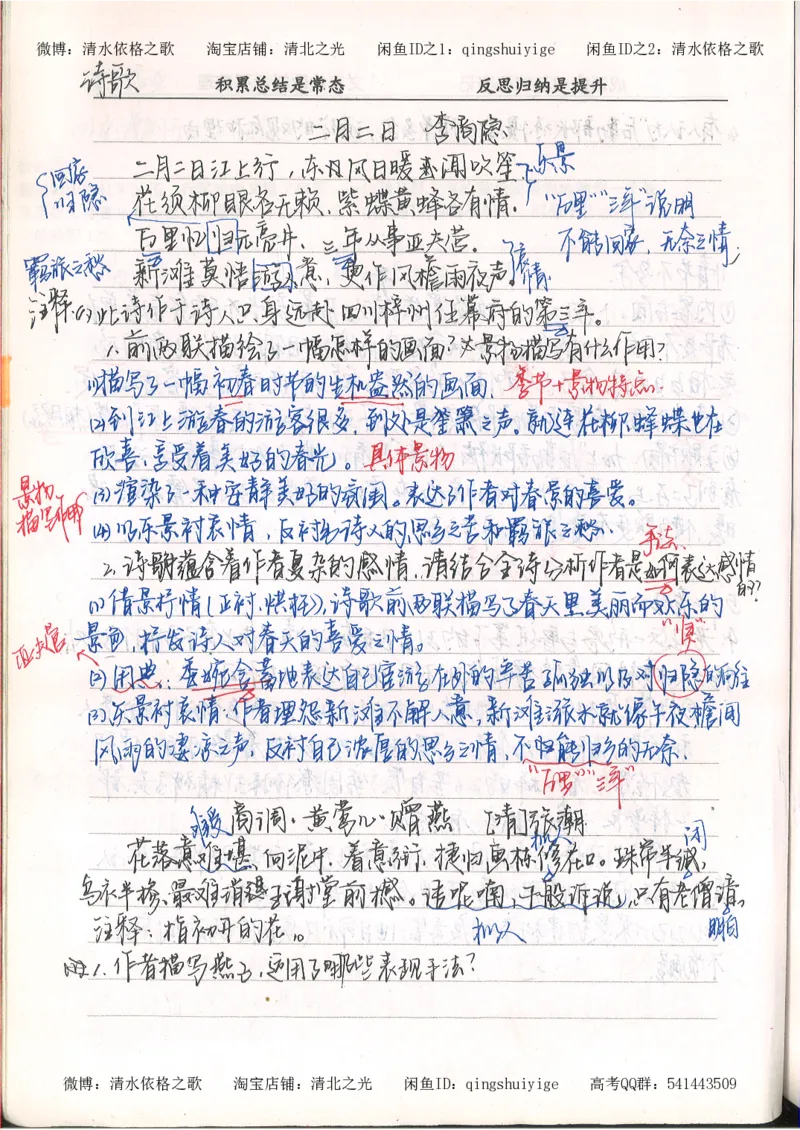 微博：清水依格之歌 淘宝店铺：清北之光 闲鱼ID之1：qingshuiyige 闲鱼ID之2：清水依格之歌
诗歌
积累总结是常态 反思归纳是提升
二月二日 李商隐
二月二日江上行，东风日暖闻吹笙。 乐景
花须柳眼各无赖，紫蝶黄蜂各有情。 "万里""三年"说明
回家 归隐
万里忆归元亮井，三年从事亚夫营。 不能回家，无奈之情
羁旅之愁 新滩莫悟游人意，更作风檐雨夜声。 哀情
注释：(1)此诗作于诗人只身远赴四川梓州任幕府的第三年。
1.前两联描绘了一幅怎样的画面？对景物描写有什么作用？
(1)描写了一幅初春时节的生机盎然的画面。 季节+景物特点
(2)到江上游春的游客很多，到处是笙箫之声。就连花柳、蜂蝶也在
欣喜，享受着美好的春光。 具体景物
景物描写作用
(3)渲染一种安静美好的氛围。表达了作者对春景的喜爱。
(4)以乐景衬哀情，反衬出诗人的思乡之苦和羁旅之愁。
手法
2.诗歌蕴含着作者复杂的感情，请结合全诗分析作者是如何表达感情的？
(1)借景抒情(正衬、烘托)，诗歌前两联描写了春天里美丽而欢乐的
景色，抒发诗人对春天的喜爱之情。 "归"
亚夫营
(2)用典：委婉含蓄地表达自己宦游在外的辛苦孤独以及对归隐的向往
(3)乐景衬哀情。作者埋怨新滩不解人意，新滩流水就像午夜檐间
风雨的凄凉之声，反衬自己浓厚的思乡之情，不能归乡的无奈。
"万里""三年"
商调·黄莺儿·赠燕 [清]张潮
花落意难堪，向泥中，着意衔，携归画栋修花口。珠帘半缄，
拟人 闭
乌衣半掺，最难消遣王谢堂前憾。语呢喃，千般诉说，只有老僧谙。
拟人 明白
注释：指初开的花。
1.作者描写燕飞，运用了哪些表现手法？
微博：清水依格之歌 淘宝店铺：清北之光 闲鱼ID：qingshuiyige 高考QQ群：541443509